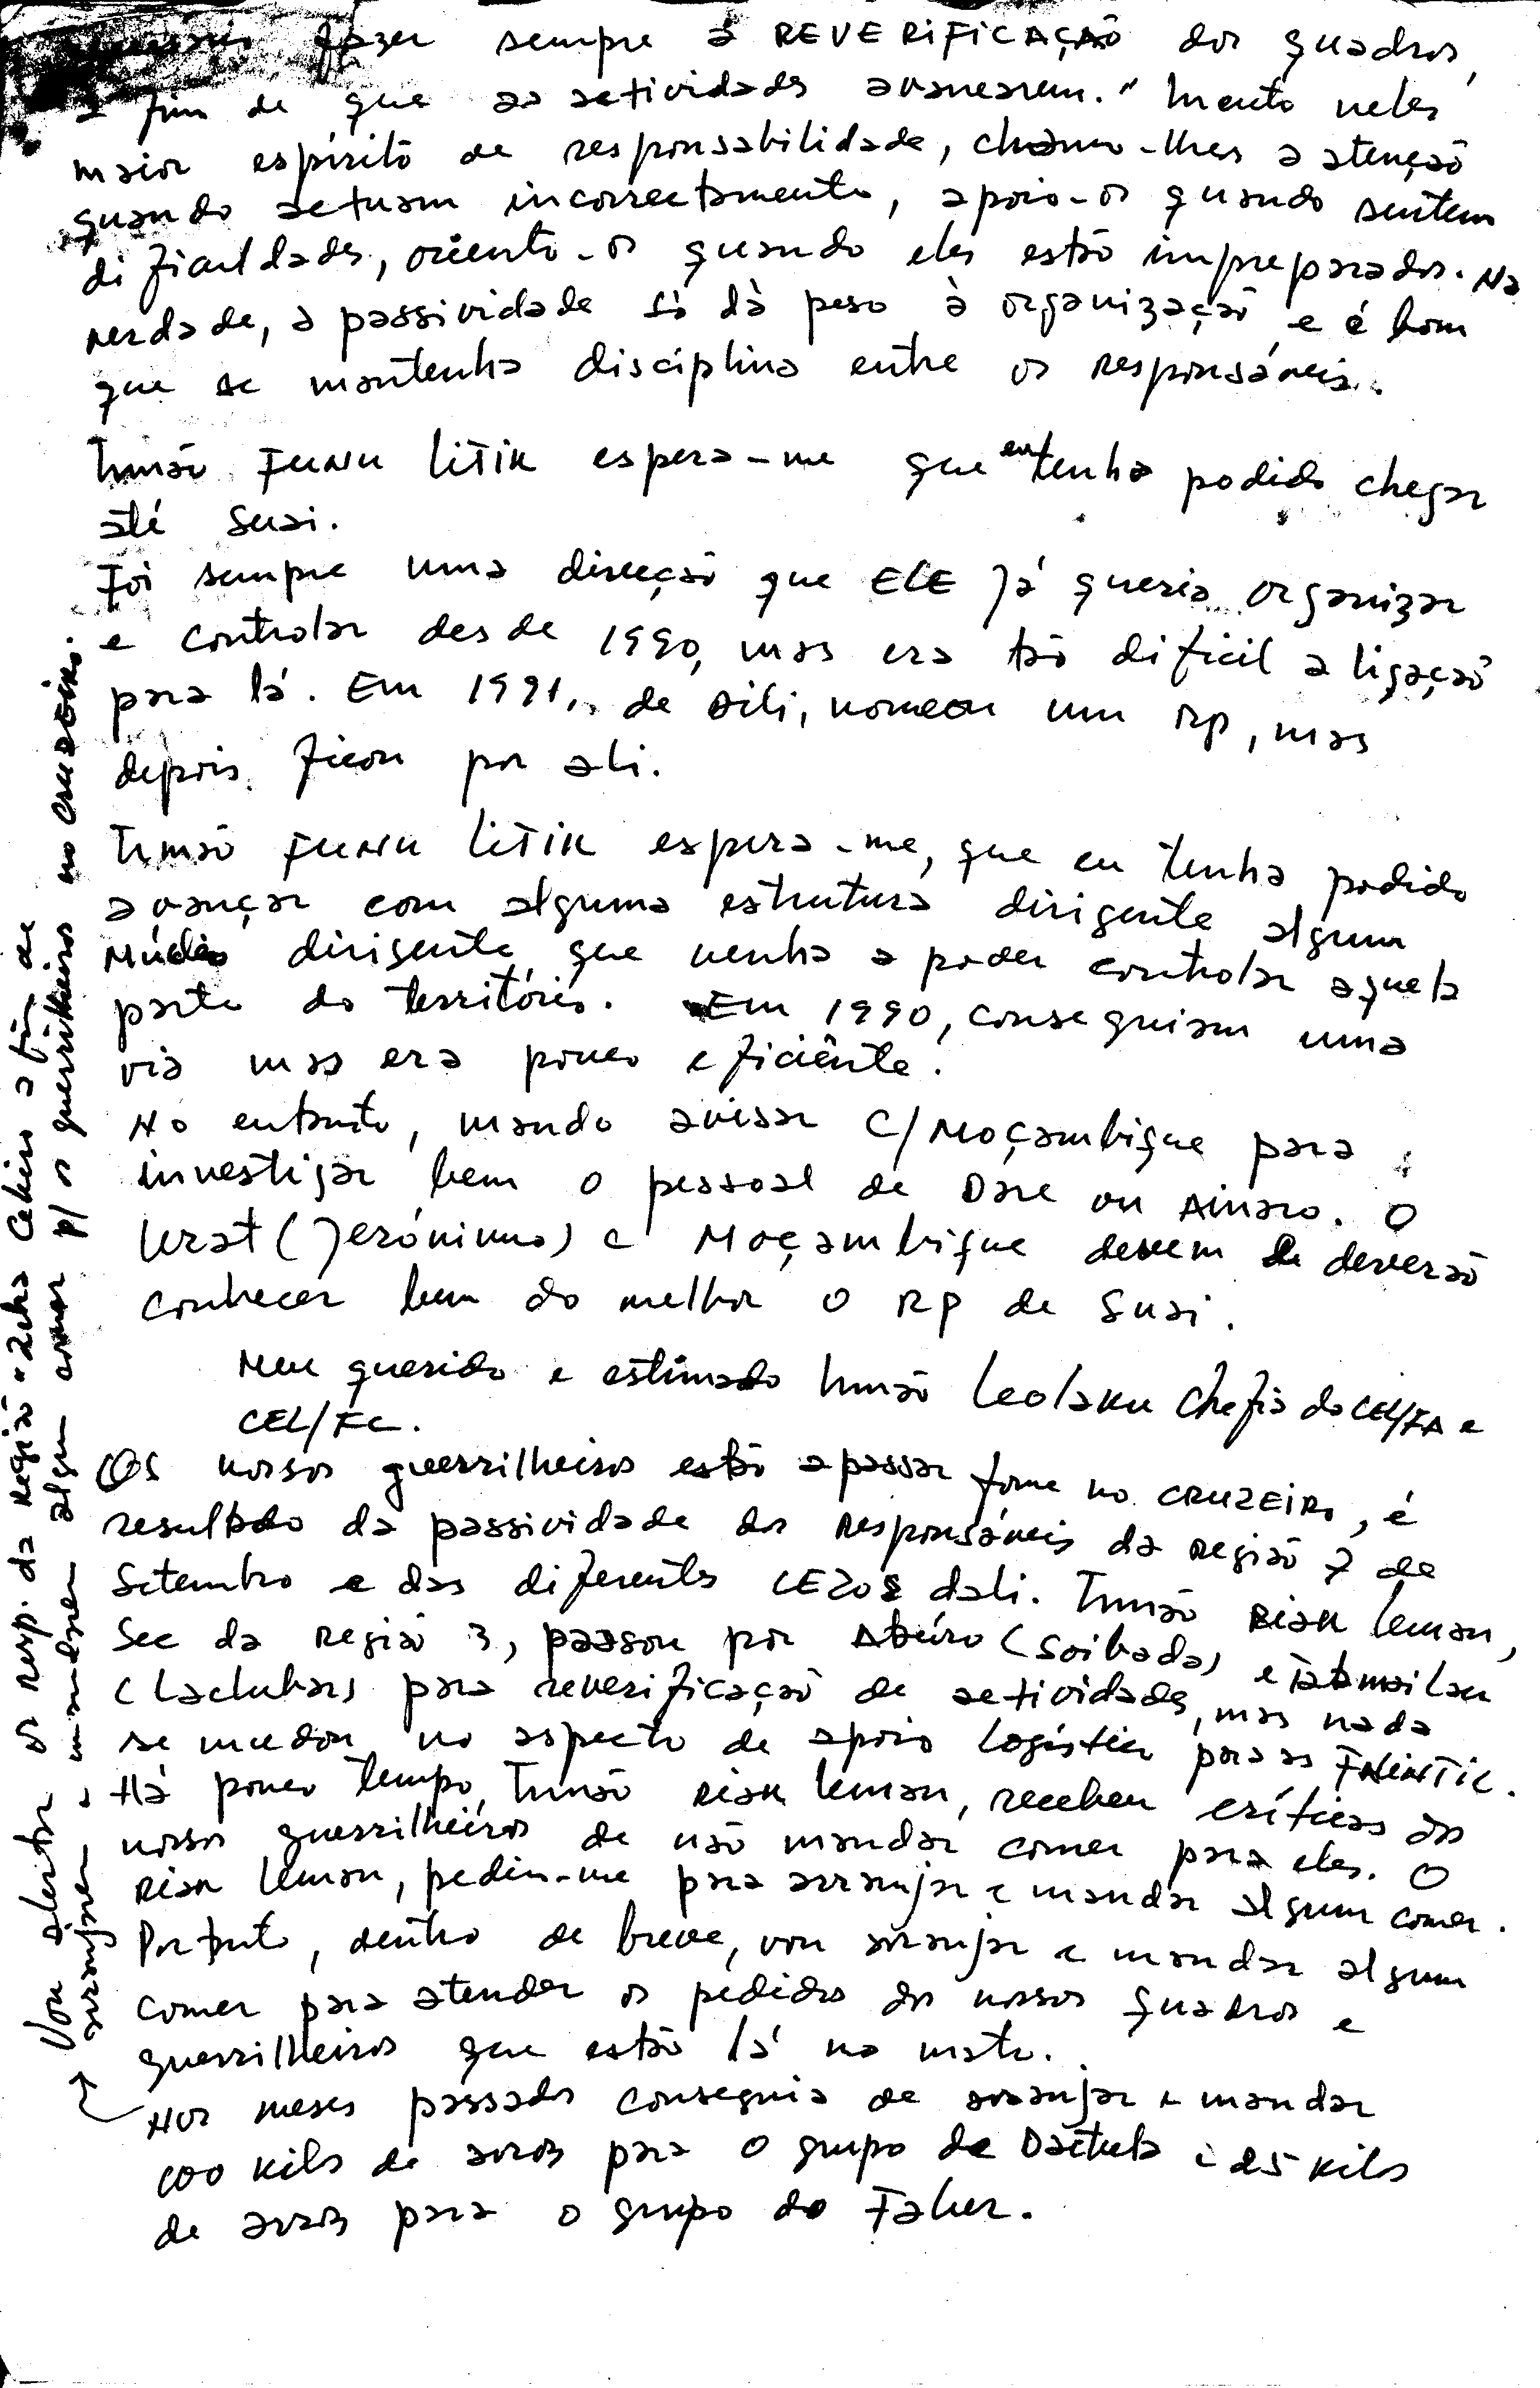 fazer sempre a REVERIFICAÇÃO dos quadros,
a fim de que as actividades avancarem." Incuto neles
maior espírito de responsabilidade, chamo-lhes a atenção
quando actuam incorrectamente, apoio-os quando sentem
dificuldades, oriento-os quando eles estão impreparados. Na
verdade, a passividade só dà peso à organização e é bom
que se mantenha disciplina entre os responsáveis.
Irmão FUNU LITIK espera-me que eu tenha podido chegar
até Suai.
Foi sempre uma direcção que ELE já queria organizar
e controlar desde 1990, mas era tão dificil a ligação
para lá. Em 1991, de Dili, nomeou um RP, mas
depois ficou por ali.
Irmão FUNU LITIK espera-me, que eu tenha podido
avançar com alguma estrutura dirigente algum
Núcleo dirigente que venha a poder controlar aquela
parte do território. Em 1990, conseguiam uma
via mas era pouco eficiênte.
No entanto, mando avisar C/Moçambique para
investigar bem o pessoal de Dare ou Ainaro. O
Lerat (Jerónimo) e Moçambique devem de deverão
conhecer bem do melhor o RP de Suai.
Meu querido e estimado Irmão Leolaku Chefia do CEL/FA e
CEL/FC.
Os nossos guerrilheiros estão a passar fome no CRUZEIRO, é
resultado da passividade dos Responsáveis da Região 7 de
Setembro e das diferentes CEZOS dali. Irmão Riak Leman,
Sec da Região 3, passou por Abeiro (Soibada) e Tatamailau
(Laclubar) para reverificação de actividades, mas nada
se mudou no aspecto de apoio Logístico para as FALINTIL.
Há pouco tempo, Irmão Riak Leman, recebeu críticas dos
nossos guerrilheiros de não mandar comer para eles. O
Riak Leman, pediu-me para arranjar e mandar algum comer.
Portanto, dentro de breve, vou arranjar e mandar algum
comer para atender os pedidos dos nossos quadros e
guerrilheiros que estão lá no mato.
Nos meses passados conseguia de arranjar e mandar
100 kilos de arroz para o grupo de Daitula e 25 kilos
de arroz para o grupo do Faluer.
Vou alertar os resp. da Região "Zeha Celiri a fim de
arranjarem e mandarem algum comer p/ os guerrilheiros no CRUZEIRO.